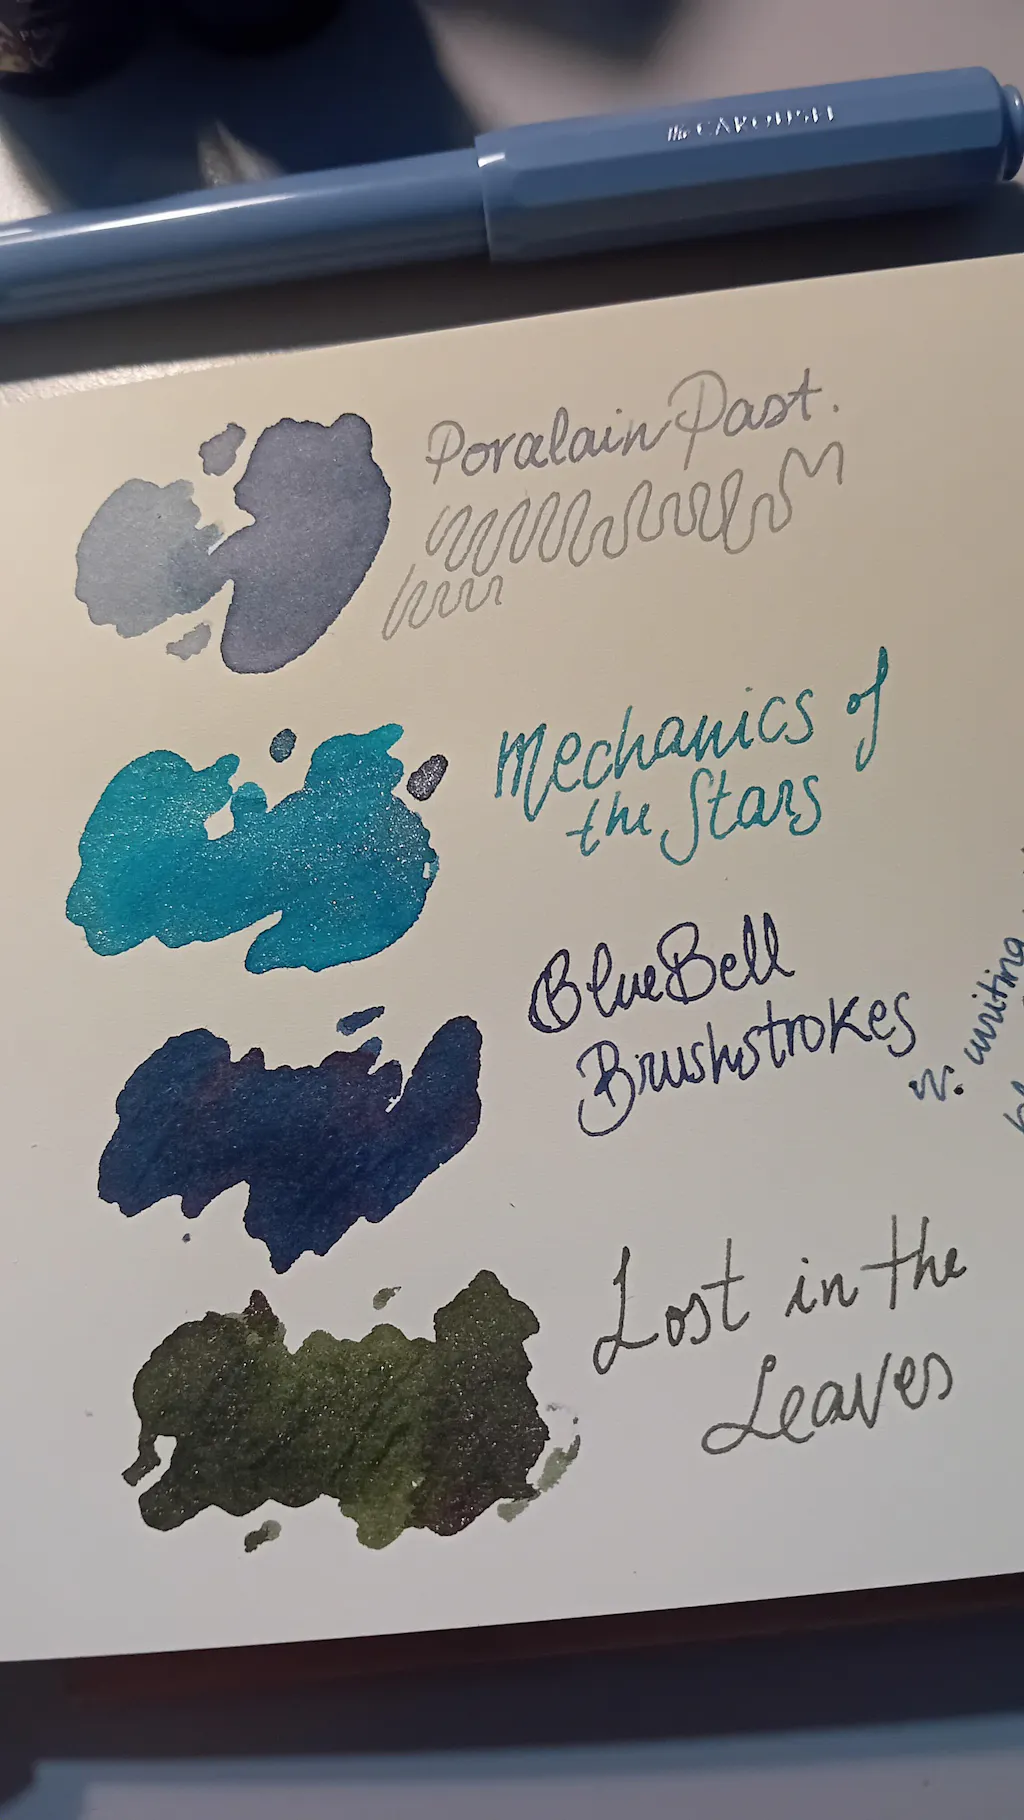 the CAROUSEL
Poralain Past.
Mechanics of
the Stars
BlueBell
Brushstrokes
writing
Lost in the
Leaves